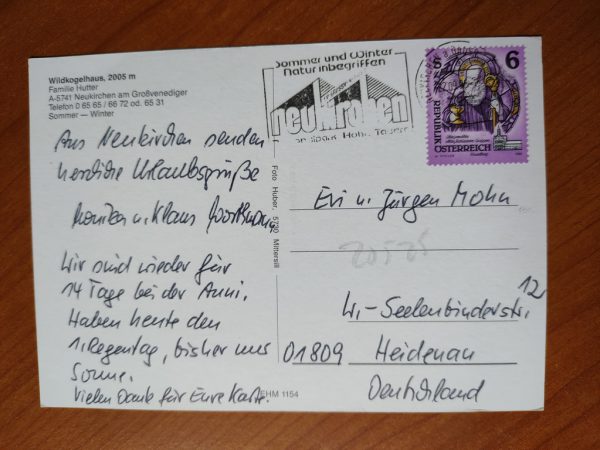 Wildkogelhaus, 2005 m
Familie Hutter
A-5741 Neukirchen am Großvenediger
Telefon 0 65 65 / 66 72 od. 65 31
Sommer — Winter
Aus Neukirchen senden
herzliche Urlaubsgrüße
Monika u. Klaus
Wir sind wieder für
14 Tage bei der Anni.
Haben heute den
1. Regentag, bisher nur
Sonne.
Vielen Dank für Eure Karte.
Foto Huber, 5730 Mittersill
HM 1154
Sommer und Winter
Natur inbegriffen
neukirchen
6
REPUBLIK
ÖSTERREICH
Evi u. Jürgen Mohn
W.-Seelenbinderstr. 12
01809 Heidenau
Deutschland